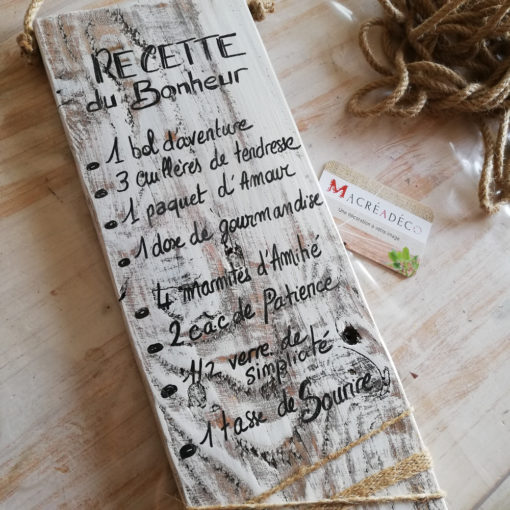 RECETTE
du Bonheur
1 bol d'aventure
3 cuillères de tendresse
1 paquet d'Amour
1 dose de gourmandise
4 marmites d'Amitié
2 c.a.c de Patience
1/2 verre de
simplicité
1 tasse de Sourire
MACRÉADÉCO
Une décoration à votre image